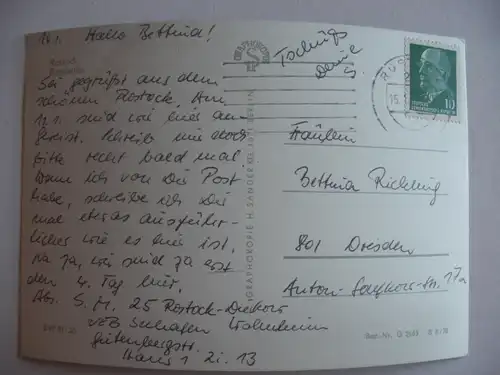 Hallo Bettina!
Sei gegrüßt aus dem
schönen Rostock. Am
12.1. sind wir hier an
gereist. Schreib mir doch
bitte recht bald mal.
Wenn ich von Dir Post
habe, schreibe ich Dir
mal etwas ausführ-
licher wie es hier ist.
Na ja, wir sind ja erst
den 4. Tag hier.
Abs. S. M. 25 Rostock-Dierkow
VEB Seehafen
Gutenbergstr.
Haus 1 Zi. 13
Tschüß
Deine
S.
Fräulein
Bettina
801 Dresden
Anton-
17a
GRAPHOKOPIE H. SANDER KG
BERLIN
10
15.
Best.-Nr.